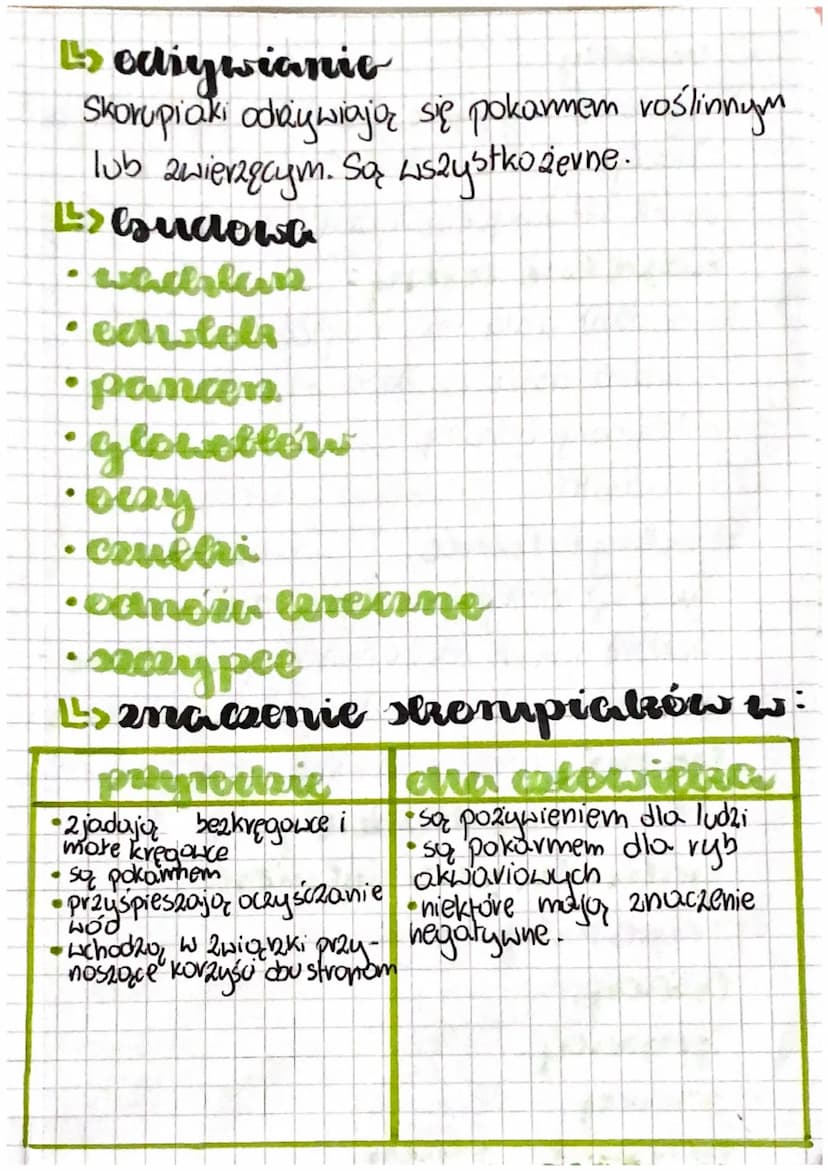 odżywianie
Skorupiaki odżywiają się pokarmem roślinnym
lub zwierzęcym. Są wszystkożerne.
budowa
• wachlarz
• odwłok
• pancerz
• głowotłów
• oczy
• czułki
• odnóża kroczne
• szczypce
znaczenie skorupiaków w:
przyrodzie
• zjadają bezkręgowce i
małe kręgowce
• są pokarmem
• przyśpieszają oczyśczanie
wód
• wchodzą w związki przy-
noszące korzyści obu stronom
dla człowieka
• są pożywieniem dla ludzi
• są pokarmem dla ryb
akwariowych
• niektóre mają znaczenie
negatywne.